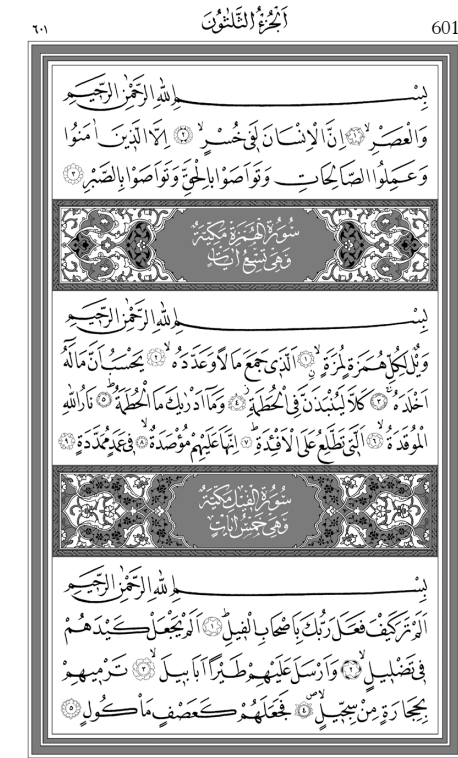 601 اَلْجُزْءُ الثَّلٰثُونَ ٦٠١
بِسْمِ اللّٰهِ الرَّحْمٰنِ الرَّحِيمِ
وَالْعَصْرِۙ ﴿١﴾ اِنَّ الْاِنْسَانَ لَفٖى خُسْرٍۙ ﴿٢﴾ اِلَّا الَّذٖينَ اٰمَنُوا
وَعَمِلُوا الصَّالِحَاتِ وَتَوَاصَوْا بِالْحَقِّ وَتَوَاصَوْا بِالصَّبْرِ ﴿٣﴾
سُورَةُ الْهُمَزَةِ مَكِّيَّةٌ
وَهِىَ تِسْعُ اٰيَاتٍ
بِسْمِ اللّٰهِ الرَّحْمٰنِ الرَّحِيمِ
وَيْلٌ لِكُلِّ هُمَزَةٍ لُمَزَةٍۙ ﴿١﴾ اَلَّذٖى جَمَعَ مَالًا وَعَدَّدَهُۙ ﴿٢﴾ يَحْسَبُ اَنَّ مَالَهُٓ
اَخْلَدَهُۚ ﴿٣﴾ كَلَّا لَيُنْبَذَنَّ فِى الْحُطَمَةِۘ ﴿٤﴾ وَمَٓا اَدْرٰيكَ مَا الْحُطَمَةُۜ ﴿٥﴾ نَارُ اللّٰهِ
الْمُوقَدَةُۙ ﴿٦﴾ اَلَّتٖى تَطَّلِعُ عَلَى الْاَفْـِٔدَةِۜ ﴿٧﴾ اِنَّهَا عَلَيْهِمْ مُؤْصَدَةٌۙ ﴿٨﴾ فٖى عَمَدٍ مُمَدَّدَةٍ ﴿٩﴾
سُورَةُ الْفٖيلِ مَكِّيَّةٌ
وَهِىَ خَمْسُ اٰيَاتٍ
بِسْمِ اللّٰهِ الرَّحْمٰنِ الرَّحِيمِ
اَلَمْ تَرَ كَيْفَ فَعَلَ رَبُّكَ بِاَصْحَابِ الْفٖيلِۜ ﴿١﴾ اَلَمْ يَجْعَلْ كَيْدَهُمْ
فٖى تَضْلٖيلٍۙ ﴿٢﴾ وَاَرْسَلَ عَلَيْهِمْ طَيْرًا اَبَابٖيلَۙ ﴿٣﴾ تَرْمٖيهِمْ
بِحِجَارَةٍ مِنْ سِجّٖيلٍۙۖ ﴿٤﴾ فَجَعَلَهُمْ كَعَصْفٍ مَاْكُولٍ ﴿٥﴾